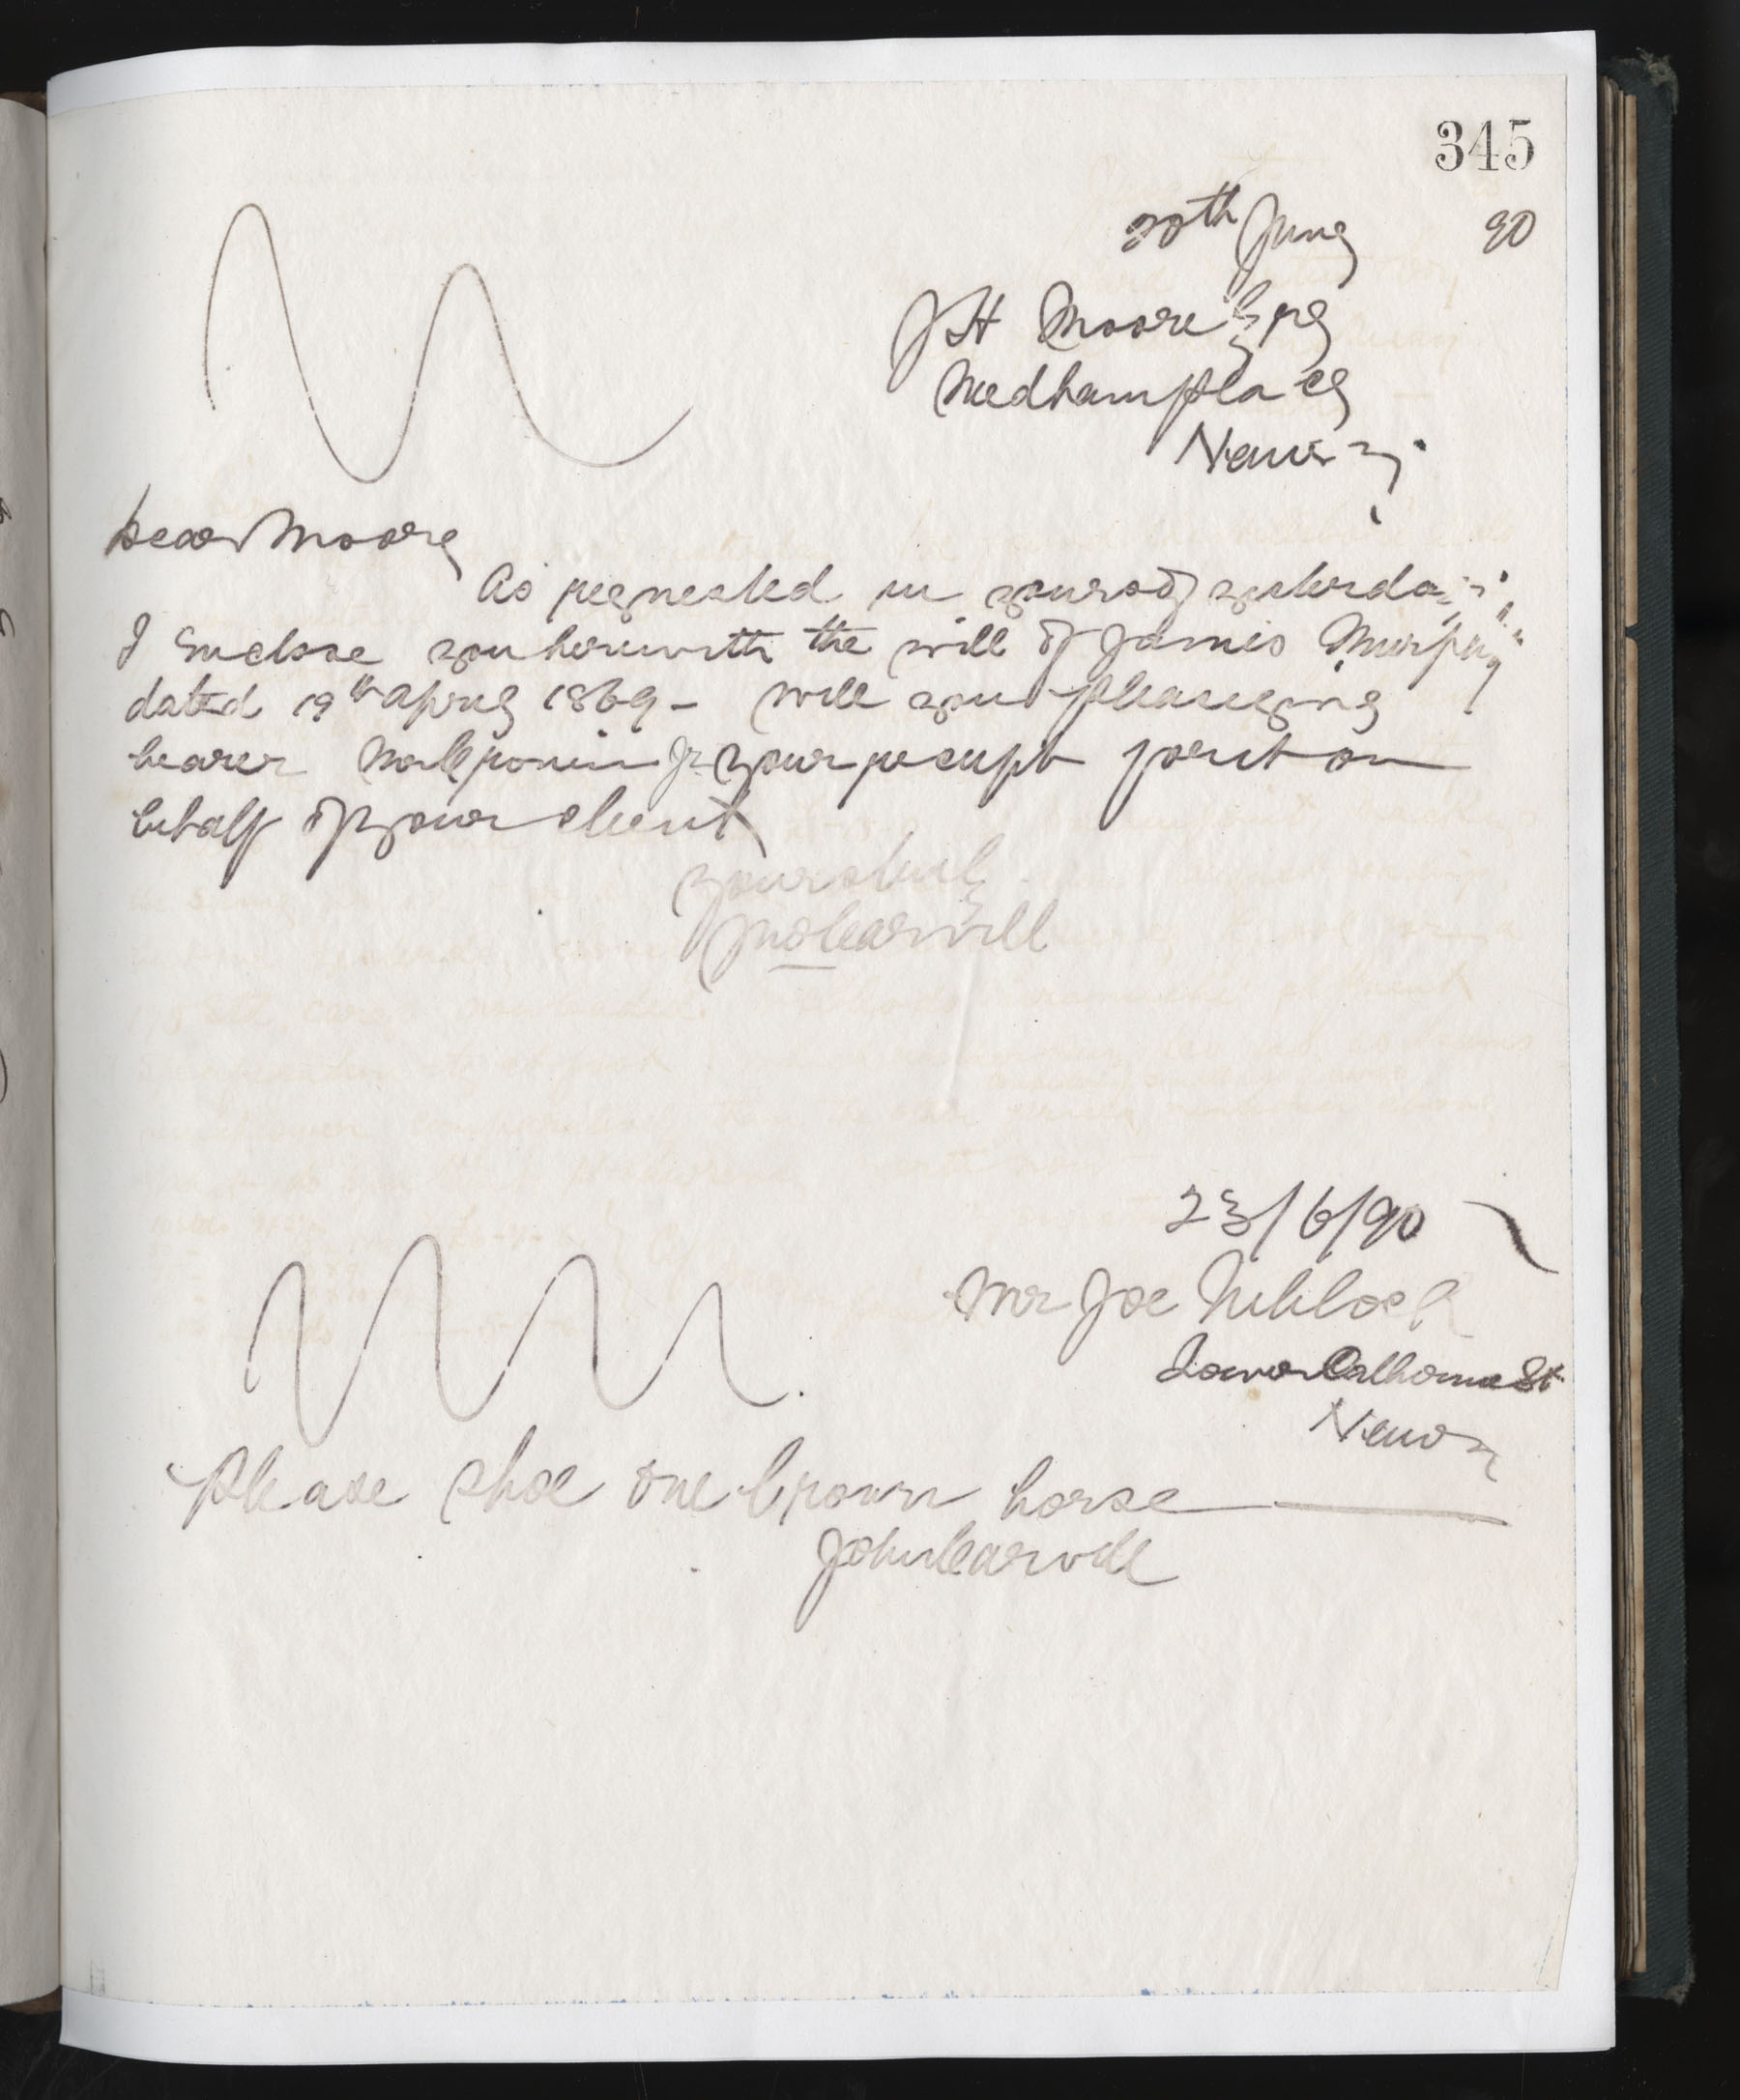 345
20th June 90
JH Moore Esq
Needham place
Newry
Dear Moore
As requested in yours of yesterday
I enclose you herewith the will of James Murphy
dated 19th April 1869 - Will you please give
bearer your receipt for it on
behalf of your client
Yours truly
Jno Carvill
23/6/90
Mr Joe Niblock
Lower Catherine St
Newry
Please shoe one brown horse
John Carvill